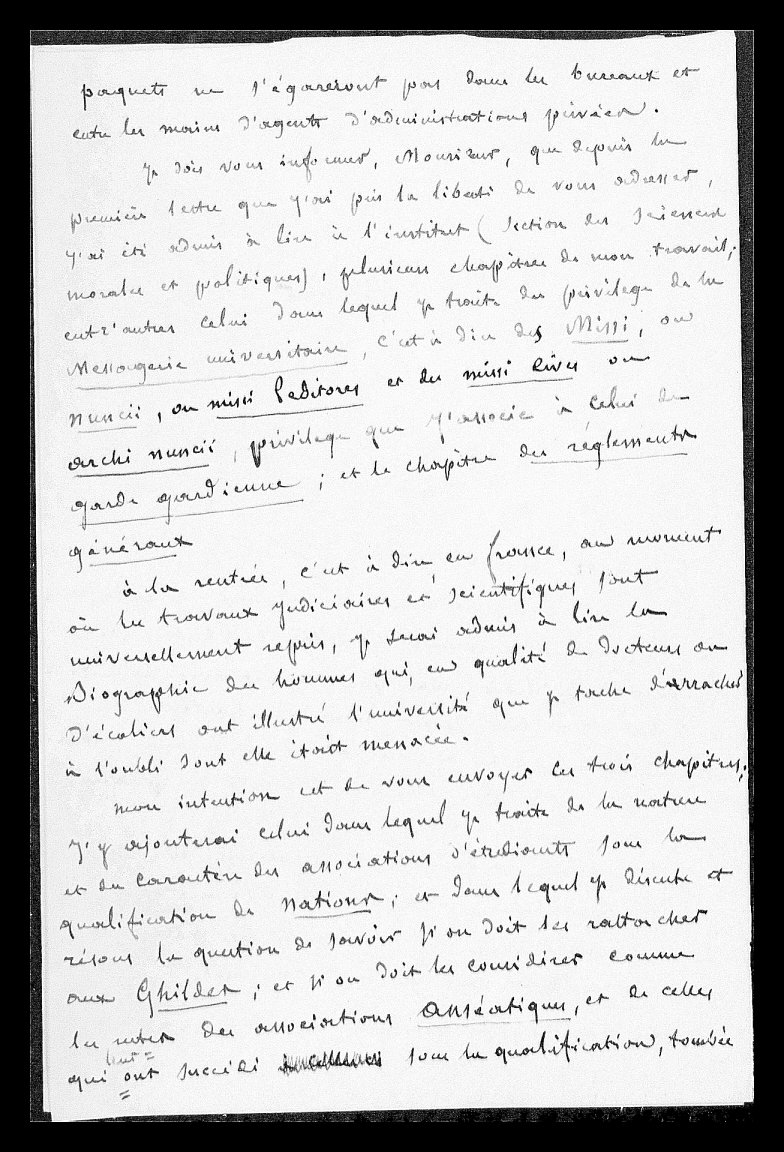 paquets ne s'égareront pas dans les bureaux et
entre les mains d'agents d'administrations privées.
je dois vous informer, Monsieur, que depuis la
première lettre que j'ai pris la liberté de vous adresser,
j'ai été admis à lire à l'institut (section des sciences
morales et politiques), plusieurs chapitres de mon travail;
entr'autres celui dans lequel je traite du privilege de la
Messagerie universitaire, c'est à dire des Missi, ou
nuncii, ou missi
et des missi
ou
archi nuncii, privilege que j'associe à celui de
garde gardienne; et le chapitre des réglements
généraux
à la rentrée, c'est à dire en france, au moment
où les travaux judiciaires et scientifiques sont
universellement repris, je serai admis à lire la
Biographie des hommes qui, en qualité de Docteurs ou
d'écoliers ont illustré l'université que je tache d'arracher
à l'oubli dont elle étoit menacée.
mon intention est de vous envoyer ces trois chapitres;
j'y ajouterai celui dans lequel je traite de la nature
et du caractère des associations d'étudiants sous la
qualification de Nations; et dans lequel je discute et
résous la question de savoir si on doit les rattacher
aux Ghildes; et si on doit les considérer comme
les
des associations anséatiques, et de celles
leur
qui ont succédé
sous la qualification, tombée